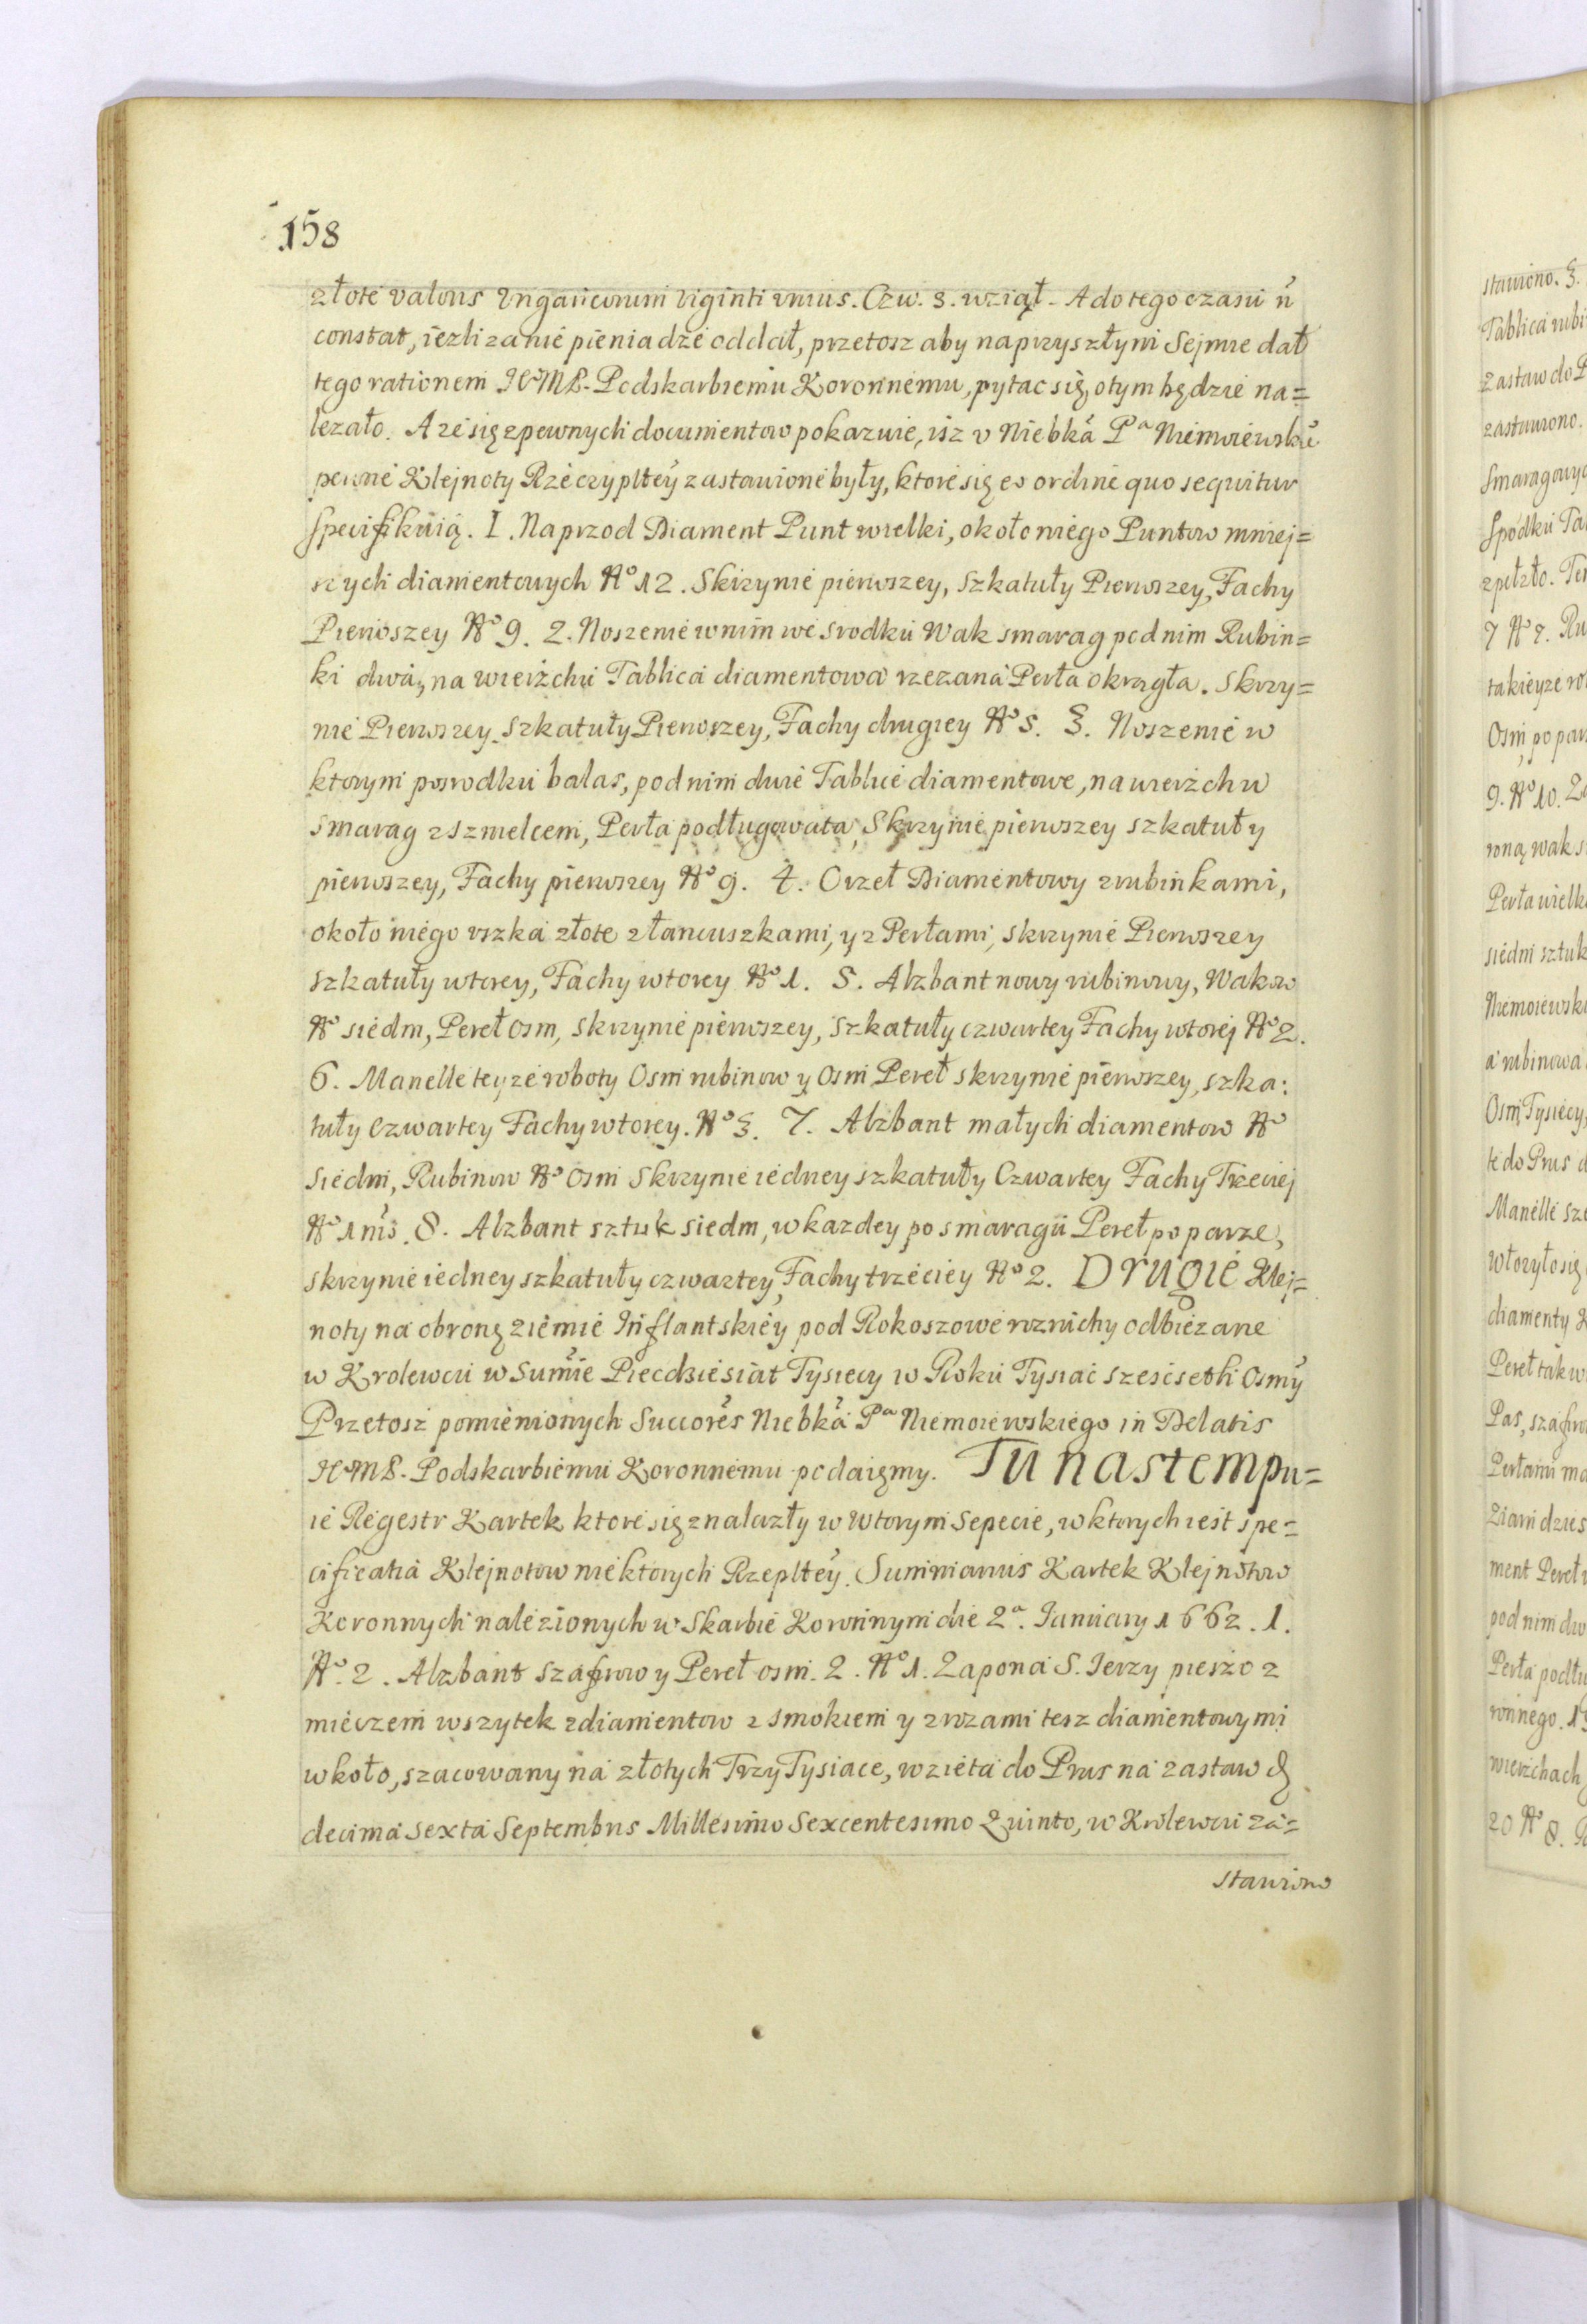 158
złote valoris Vngaricorum viginti vnius. Czw. 3. wziął. A do tego czasu ń
constat, iezli za nie pieniadze oddał, przetosz aby na przyszłym Sejmie dał
tego rationem JEMP. Podskarbiemu Koronnemu, pytac się otym będzie na=
lezało. A ze się z pewnych documentow pokazuie, isz v Niebka Pa Niemoiewski
pewne Klejnoty Rzeczyplteÿ zastawione były, ktore się eo ordine quo sequitur
specifikuią. I. Naprzod Diament Punt wielki, około niego Puntow mniej=
szych diamentowych No 12. Skrzynie pierwszey, Szkatuły Pierwszey, Fachy
Pierwszey No 9. 2. Noszenie w nim we srodku Wak smarag pod nim Rubin=
ki dwa, na wierzchu Tablica diamentowa rzezana Perła okrągła. Skrzy=
nie Pierwszey Szkatuły Pierwszey, Fachy drugiey No 5. 3. Noszenie w
ktorym posrodku balas, pod nim dwie Tablice diamentowe, na wierzchu
smarag z szmelcem, Perła podługowata, Skrzynie pierwszey szkatuły
pierwszey, Fachy pierwszey No 9. 4. Orzeł Diamentowy z rubinkami,
około niego vszka złote z łancuszkami, y z Perłami, skrzynie Pierwszey
szkatuły wtorey, Fachy wtorey No 1. 5. Alzbant nowy rubinowy, Wakow
No siedm, Pereł osm, skrzynie pierwszey, szkatuły czwartey Fachy wtorej No 2.
6. Manelle teyze roboty Osm rubinow y Osm Pereł skrzynie pierwszey, szka:
tuły Czwartey Fachy wtorey. No 3. 7. Alzbant małych diamentow No
siedm, Rubinow No osm Skrzynie iedney szkatuły Czwartey Fachy Trzeciej
No 1 ms. 8. Alzbant sztuk siedm, w kazdey po smaragu Pereł po parze,
skrzynie iedney szkatuły czwartey, Fachy trzeciey No 2. DRUGIE Klej=
noty na obronę ziemie Inflantskiey pod Rokoszowe roznichy odbiezane
w Krolewcu w Summie Piecdziesiat Tysiecy w Roku Tysiac szescsetli Osmÿ
Przetosz pomienionych Succores Niebka Pa Niemoiewskiego in Delatis
JEMP. Podskarbiemu Koronnemu podaięmy. Tu nastempu=
ie Regestr Kartek ktore się znalazły w Wtorym Sepecie, w ktorych iest spe=
cificatia Klejnotow niektorych Rzeplteÿ. Summarius Kartek Klejnotow
Koronnych nalezionych w Skarbie Koronnym die 2a. Ianuary 1662. 1.
No. 2. Alzbant szafirow y Pereł osm. 2. No 1. Zapona S. Jerzy pieszo z
mieczem wszytek z diamentow z smokiem y z rozami tesz diamentowymi
wkoło, szacowany na złotych Trzy Tysiace, wzieta do Prus na zastaw d
decima sexta Septembris Millesimo Sexcentesimo Quinto, w Krolewcu za=
stawiono
stawiono. 3.
Tablica rubi
zastaw do P
zastawiono.
Smaragowyc
Spodku Ta
7 No 7. Ru
takieyze ro
Osm, po par
9. No 10. Za
roną wak s
Perła wielk
siedm sztuk
Niemoiewski
a rubinowa
Osm Tysiecy
te do Prus d
Manelle sz
włozyło się
diamenty K
Pereł tak w
Pas, szafiro
Perłami ma
Ziarn dzies
ment Pereł
pod nim dw
Perła podłu
wierzchach
20 No 8.